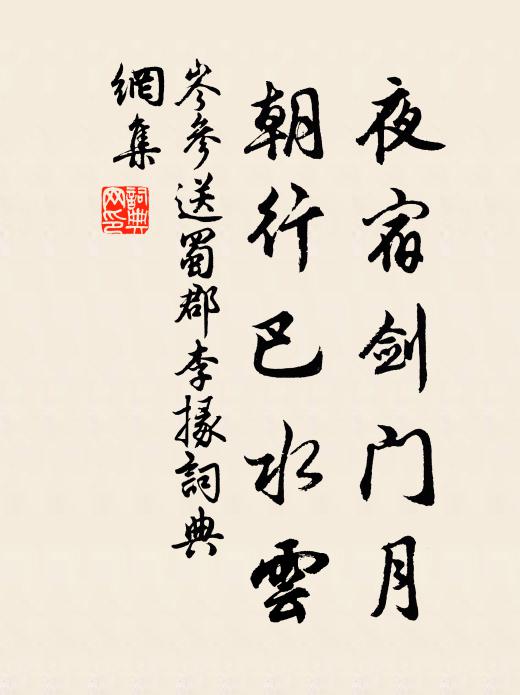 夜宿剑门月
朝行巴水雲
岑參送蜀郡李掾詞典
網集
詞典
网印